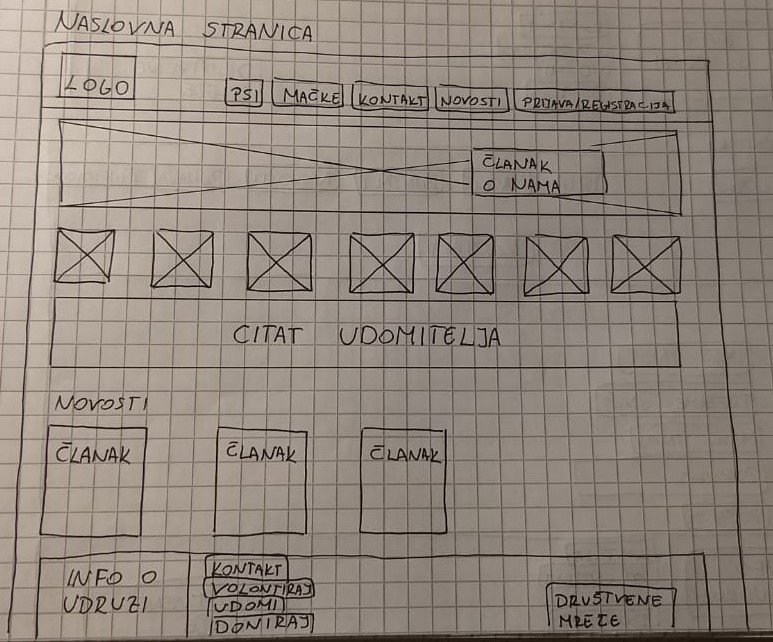 NASLOVNA STRANICA
LOGO
PSI
MAČKE
KONTAKT
NOVOSTI
PRIJAVA/REGISTRACIJA
ČLANAK
O NAMA
CITAT UDOMITELJA
NOVOSTI
ČLANAK
ČLANAK
ČLANAK
INFO O
UDRUZI
KONTAKT
VOLONTIRAJ
UDOMI
DONIRAJ
DRUŠTVENE
MREŽE